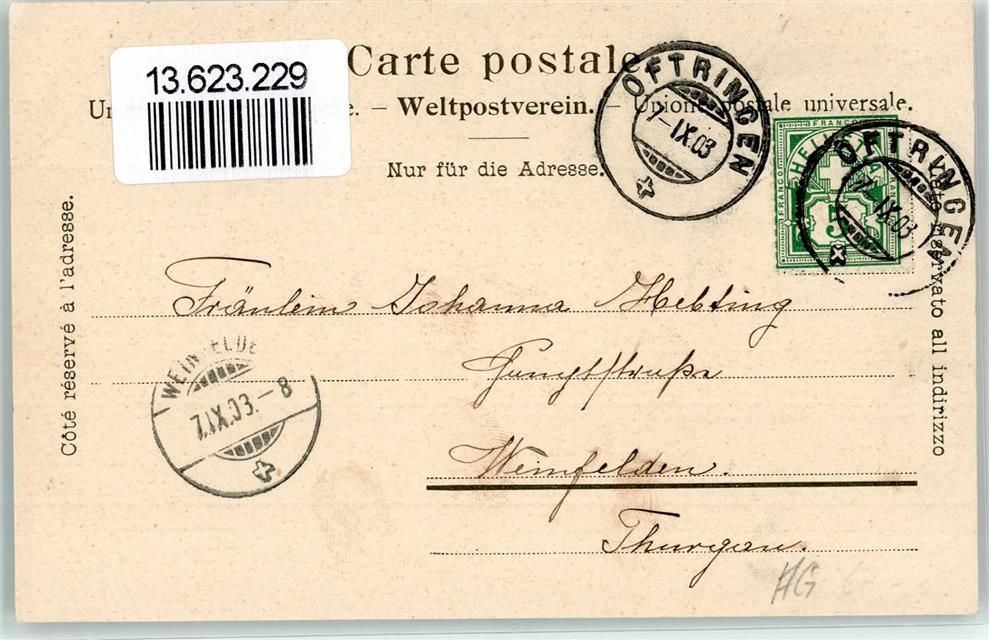 13.623.229
Carte postale
e. – Weltpostverein. – Unione postale universale.
Nur für die Adresse.
Côté réservé à l'adresse.
Lato riservato all indirizzo
OFTRINGEN
7–IX.03
FRANCO
HELVETIA
5
OFTRINGEN
7–IX.03
Fräulein Johanna Hebting
Weinfelden.
Thurgau.
WEINFELDE
7.IX.03.–8
HG